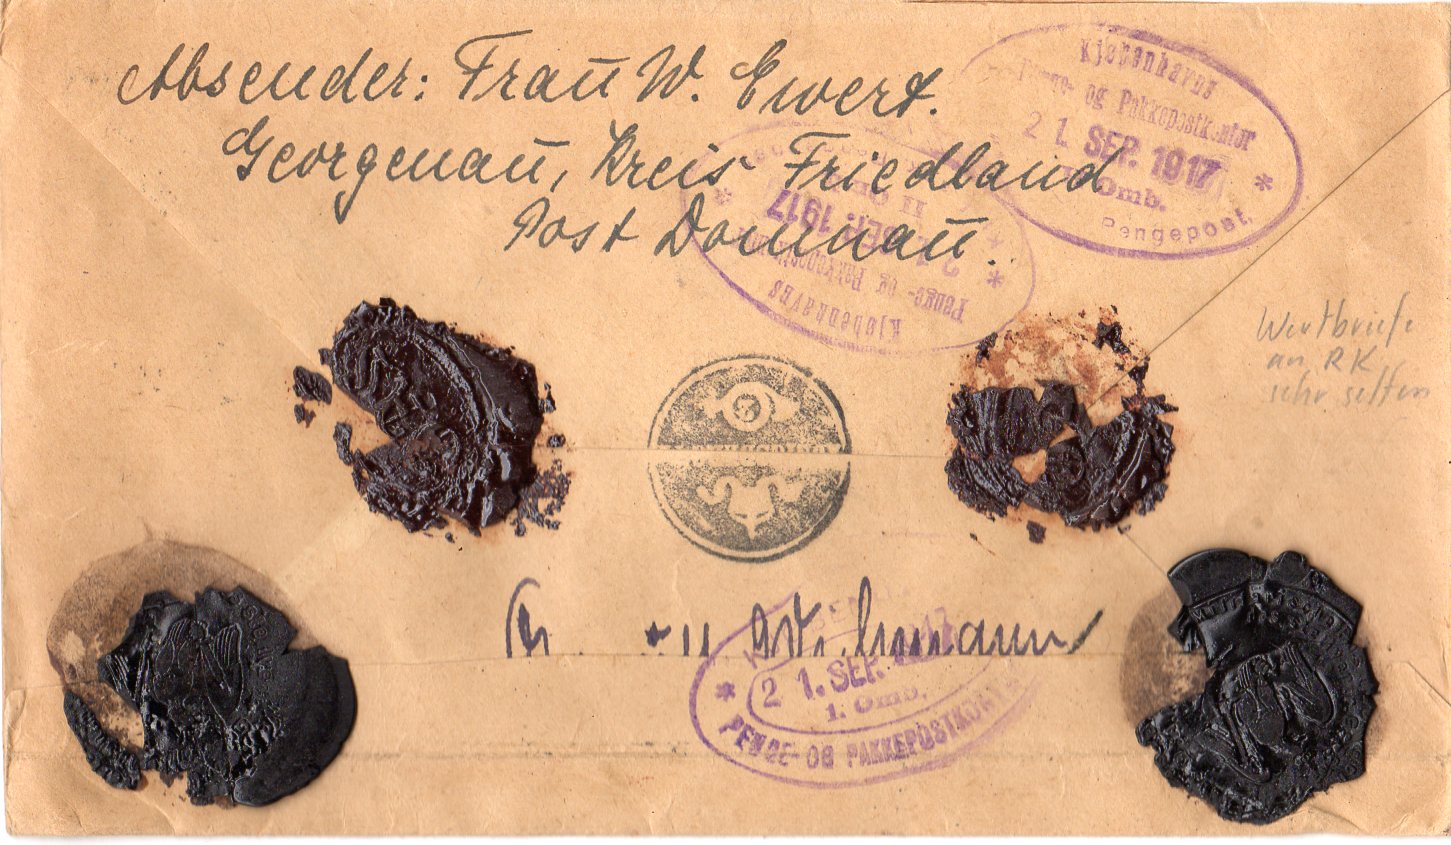 Absender: Frau W. Ewert.
Georgenau, Kreis Friedland
Post Domnau.
Kjøbenhavns
Penge- og Pakkepostkontor
21. SEP. 1917
Omb.
Pengepost.
Kjøbenhavns
Penge- og Pakkepostkontor
21. SEP. 1917
II Omb.
Wertbriefe
an RK
sehr selten
21. SEP. 1917
1. Omb.
PENGE- OG PAKKEPOSTKONTOR